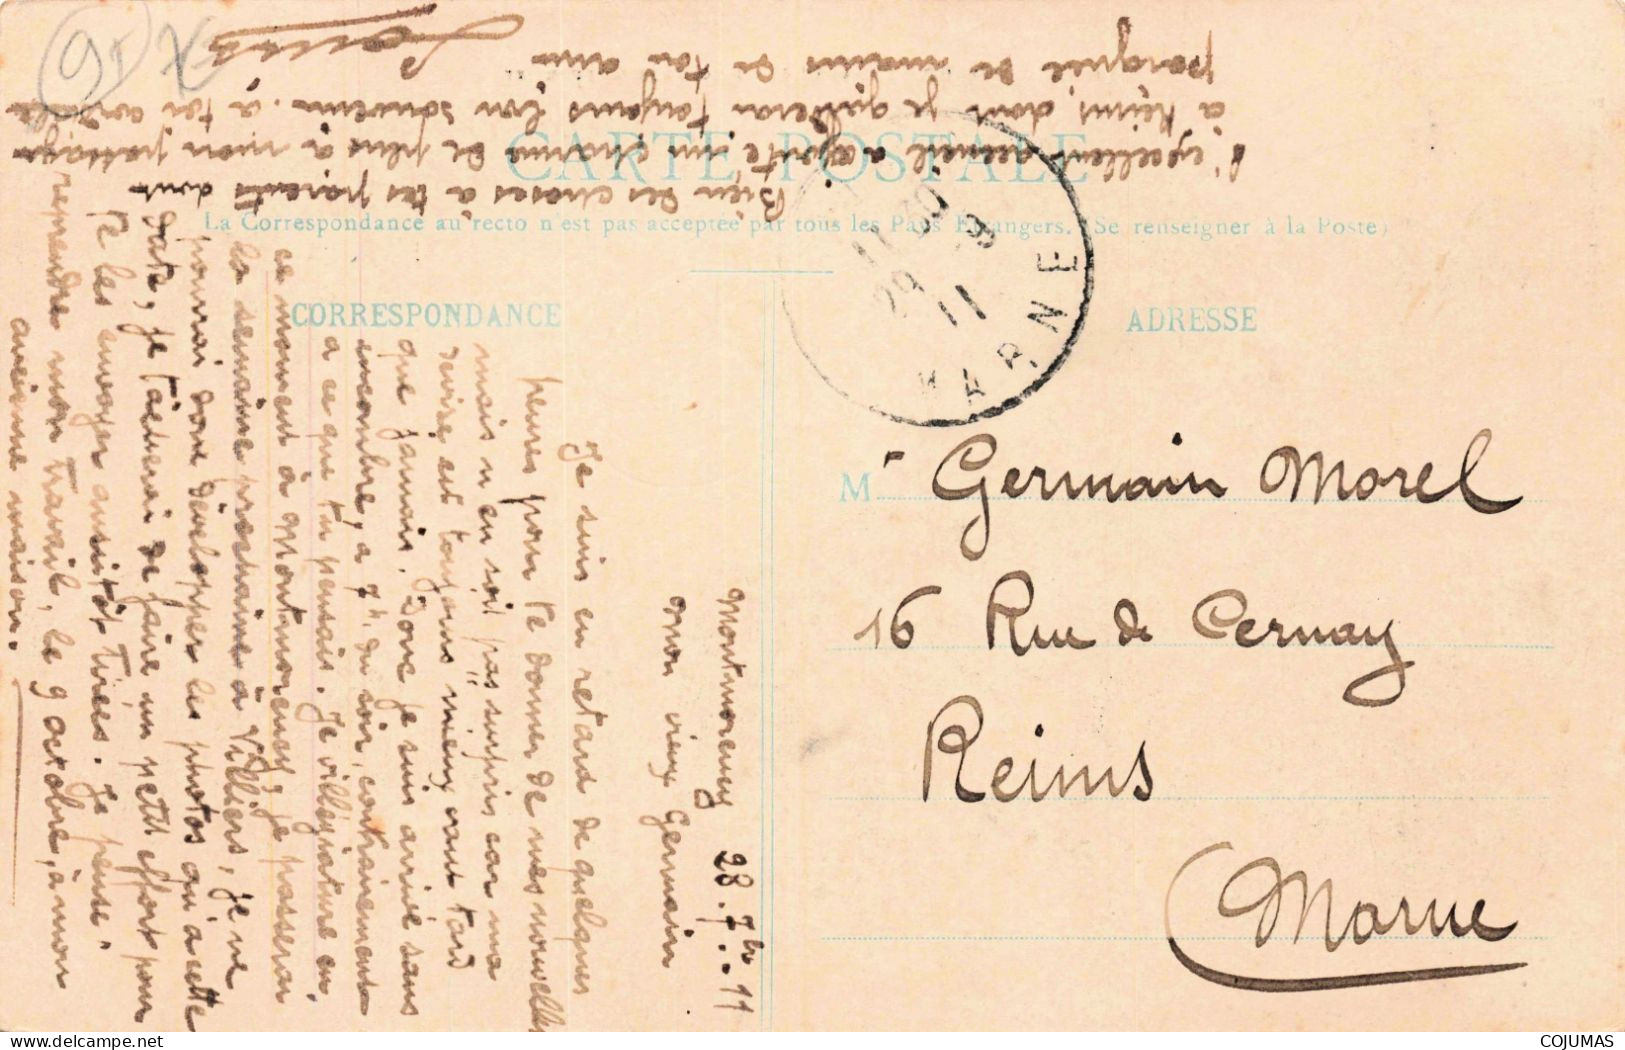 CARTE POSTALE
La Correspondance au recto n'est pas acceptée par tous les Pays Etrangers. (Se renseigner à la Poste)
CORRESPONDANCE
ADRESSE
Montmorency 28. 7bre. 11
Mon vieux Germain
Je suis en retard de quelques
heures pour te donner de mes nouvelles
mais n'en sois pas surpris car ma
devise est toujours "mieux vaut tard
que jamais. Donc je suis arrivé sans
encombre, à 7h du soir, contrairement
à ce que tu pensais. Je villégiature en
ce moment à Montmorency, je passerai
la semaine prochaine à Villiers, je ne
pourrai donc développer les photos qu'à cette
date, je tâcherai de faire un petit effort pour
te les envoyer aussitôt tirées. Je pense
reprendre mon travail, le 9 octobre, à mon
ancienne maison.
Bien des choses à tes parents dont
l'excellent accueil ajoute un charme de plus à mon passage
à Reims, dont je garderai toujours bon souvenir. à toi cordiale
poignée de mains de ton ami
Louis
95
11 30
29 - 9
11
MARNE
M r Germain Morel
16 Rue de Cernay
Reims
Marne
COJUMAS